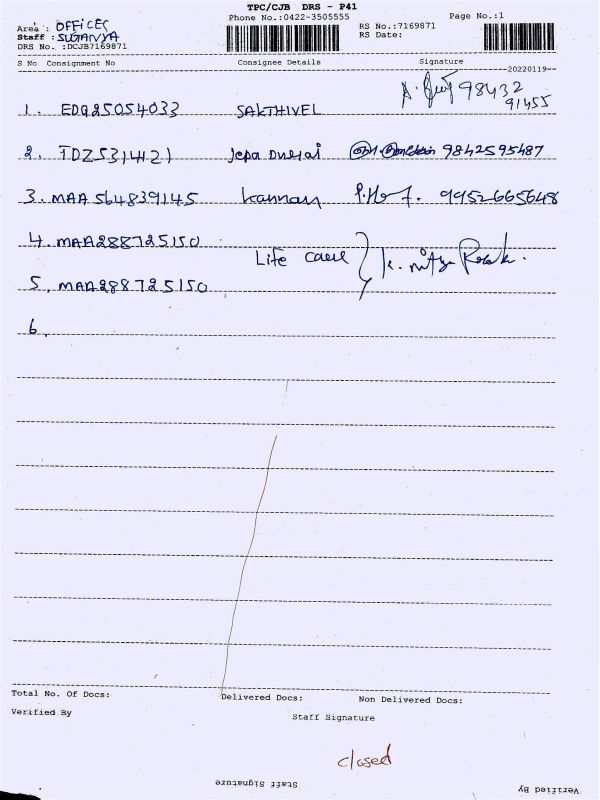 TPC/CJB DRS - P41
Phone No.:0422-3505555 Page No.:1
Area : OFFICES RS No.:7169871
Staff : SUGANYA RS Date:
DRS No. :DCJB7169871
S No Consignment No Consignee Details Signature
20220119
1. EDQ25054033 SAKTHIVEL 98432 91455
2. TDZ5314421 Jepa Durai 9842595487
3. MAA 564839145 kannan 9952665648
4. MAA288725150
Life care
5. MAA288725150
6.
Total No. Of Docs: Delivered Docs: Non Delivered Docs:
Verified By Staff Signature
closed
Staff Signature Verified By